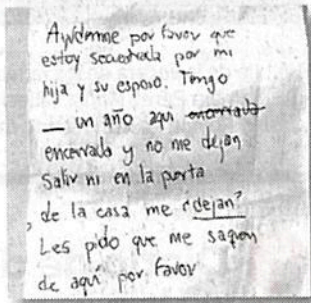 Ayúdenme por favor que
estoy secuestrada por mi
hija y su esposo. Tengo
— un año aqui encerrada
encerrada y no me dejan
salir ni en la porta
, de la casa me ¿dejan?
Les pido que me saquen
de aquí por favor